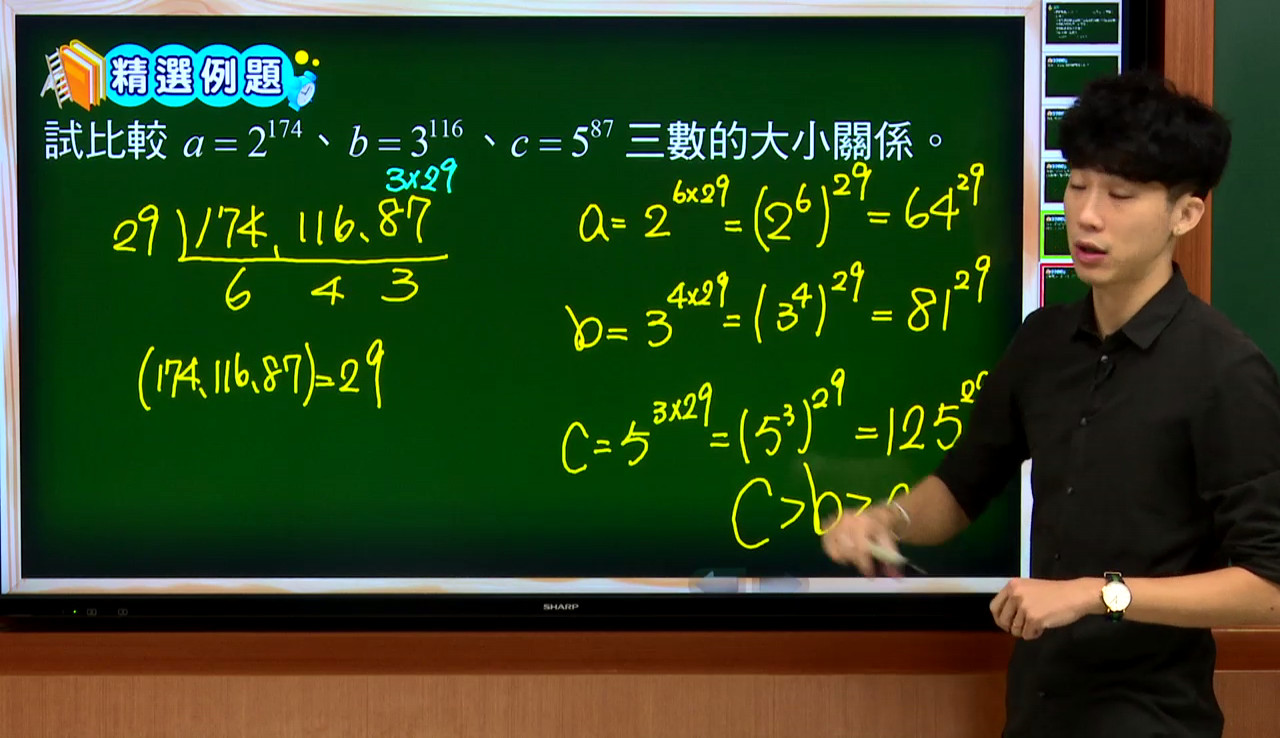 精選例題
試比較 a = 2^174、b = 3^116、c = 5^87 三數的大小關係。
3×29
29 174、116、87
6 4 3
(174、116、87)=29
a= 2^6×29 = (2^6)^29 = 64^29
b= 3^4×29 = (3^4)^29 = 81^29
C= 5^3×29 = (5^3)^29 = 125^29
C>b>
SHARP